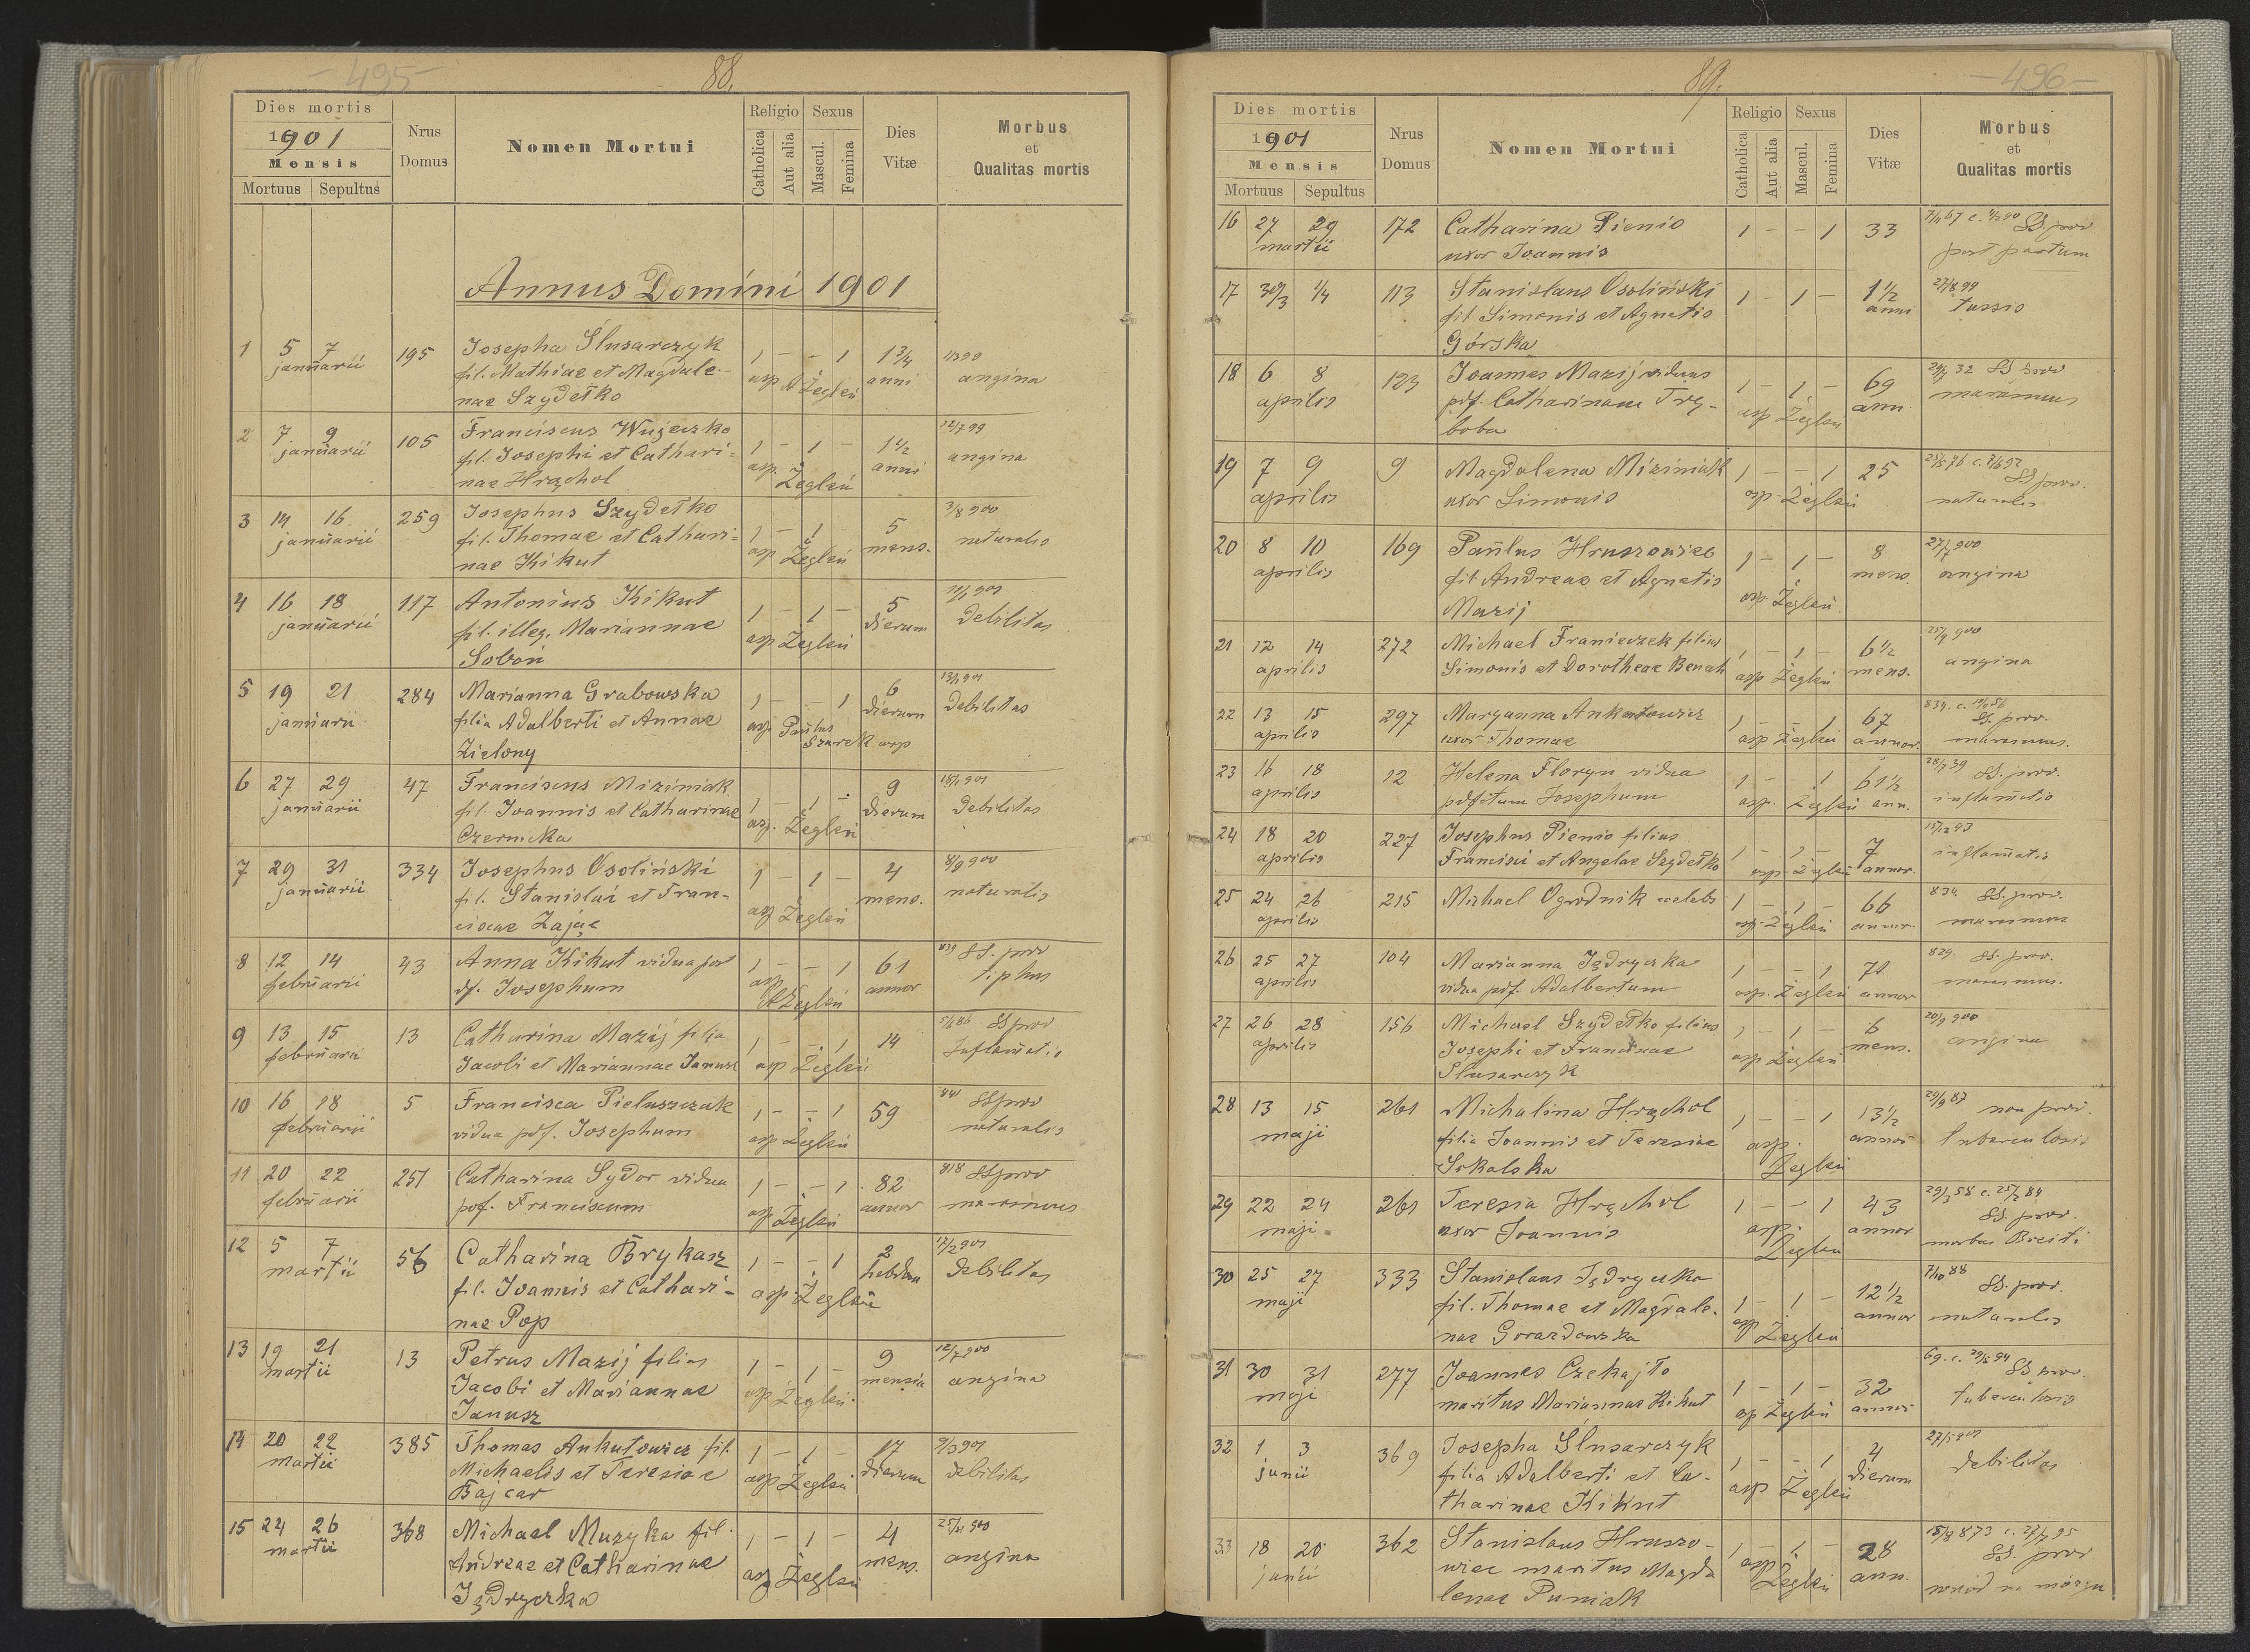 - 495 -
88.
Dies mortis
1901
Mensis
Mortuus Sepultus
Nrus Domus
Nomen Mortui
Religio
Catholica
Aut alia
Sexus
Mascul.
Femina
Dies Vitæ
Morbus et Qualitas mortis
Annus Domini 1901
1 5 7 195 Josepha Ślusarczyk 1 - - 1 1 3/4
januarii fil. Mathiae et Magdale- asp Żegleń anni angina
nae Szydełko
2 7 9 105 Franciscus Wujeczko 1 - 1 - 1 1/2 12/7 99
januarii fil. Josephi et Cathari- asp. Żegleń anni angina
nae Hrąchol
3 14 16 259 Josephus Szydełko 1 - 1 - 5 3/8 900
januarii fil. Thomae et Cathari- asp Żegleń mens. naturalis
nae Kikut
4 16 18 117 Antonius Kikut 1 - 1 - 5 11/1 901
januarii fil. illeg. Mariannae asp Żegleń dierum debilitas
Soboń
5 19 21 284 Marianna Grabowska 1 - - 1 6 13/1 901
januarii filia Adalberti et Annae asp. Paulus Szurek dierum debilitas
Zielony
6 27 29 47 Franciscus Miziniak 1 - 1 - 9 18/1 901
januarii fil. Joannis et Catharinae asp. Żegleń dierum debilitas
Czernicka
7 29 31 334 Josephus Osoliński 1 - 1 - 4 8/9 900
januarii fil. Stanislai et Fran- asp Żegleń mens. naturalis
ciscae Zając
8 12 14 43 Anna Kikut vidua post 1 - - 1 61 839 SS. prov
februarii df. Josephum asp Żegleń annor tiphus
9 13 15 13 Catharina Mazij filia 1 - - 1 14 SS prov
februarii Jacobi et Mariannae Janusz asp Żegleń Inflamatio
10 16 18 5 Francisca Pieluszczak 1 - - 1 59 841 SS prov
februarii vidua pdf. Josephum asp Żegleń naturalis
11 20 22 251 Catharina Sydor vidua 1 - - 1 82 818 SS prov
februarii pdf. Franciscum asp Żegleń annor marasmus
12 5 7 56 Catharina Brykasz 1 - - 1 2 17/2 901
martii fil. Joannis et Cathari- asp. Żegleń hebdom debilitas
nae Pop
13 19 21 13 Petrus Mazij filius 1 - 1 - 9 12/7 900
martii Jacobi et Mariannae asp Żegleń mensia angina
Janusz
14 20 22 385 Thomas Ankutowicz fil. 1 - 1 - 17 901
martii Michaelis et Teresiae asp Żegleń dierum debilitas
Bajcar
15 24 26 368 Michael Muzyka fil. 1 - 1 - 4 25/11 900
martii Andreae et Catharinae asp Żegleń mens. angina
Jędryczka
89.
- 496 -
Dies mortis
1901
Mensis
Mortuus Sepultus
Nrus Domus
Nomen Mortui
Religio
Catholica
Aut alia
Sexus
Mascul.
Femina
Dies Vitæ
Morbus et Qualitas mortis
16 27 29 172 Catharina Pienio 1 - - 1 33 SS. prov
martii uxor Joannis post partum
17 30/3 1/4 113 Stanislaus Osoliński 1 - 1 - 1 1/2 27/8 99
fil Simonis et Agnetis anni tussis
Górska
18 6 8 123 Joannes Mazij viduus 1 - 1 - 69 32 SS prov
aprilis pdf. Catharinam Trę- asp Żegleń ann. marasmus
boba
19 7 9 9 Magdalena Miziniak 1 - - 1 25 SS prov.
aprilis uxor Simonis asp. Żegleń naturalis
20 8 10 169 Paulus Hruszowiec 1 - 1 - 8 27/7 900
aprilis fil Andreae et Agnetis asp. Żegleń mens. angina
Mazij
21 12 14 272 Michael Franieczek filius 1 - 1 - 6 1/2 25/9 900
aprilis Simonis et Dorotheae Benah asp Żegleń mens. angina
22 13 15 297 Maryanna Ankutowicz 1 - - 1 67 834. SS. prov.
aprilis uxor Thomae asp Żegleń annor. marasmus.
23 16 18 12 Helena Floryn vidua 1 - - 1 61 1/2 28/7 39 SS. prov.
aprilis pdfctum Josephum asp. Żegleń ann. inflamatio
24 18 20 227 Josephus Pienio filius 1 - 1 - 7 15/12 93
aprilis Francisci et Angelae Szydełko asp. Żegleń annor. inflamatio
25 24 26 215 Michael Ogrodnik celebs 1 - 1 - 66 834. SS. prov.
aprilis asp. Żegleń annor. marasmus
26 25 27 104 Marianna Jędryczka 1 - - 1 829. SS. prov.
aprilis vidua pdf. Adalbertum asp. Żegleń annor marasmus.
27 26 28 156 Michael Szydełko filius 1 - 1 - 6 20/9 900
aprilis Josephi et Francisae asp Żegleń mens. angina
Ślusarczyk
28 13 15 261 Michalina Hrąchol 1 - - 1 13 1/2 29/9 87 non prov.
maji filia Joannis et Teresiae asp. Żegleń annor tuberculosis
Sokalska
29 22 24 261 Teresia Hrąchol 1 - - 1 43 29/3 58 c. 25/2 84 SS. prov.
maji uxor Joannis asp. Żegleń annor morbus Breiti
30 25 27 333 Stanislaus Jędryczka 1 - 1 - 12 1/2 7/10 88 SS. prov.
maji fil. Thomae et Magdale- asp Żegleń annor naturalis
nae Gorazdowska
31 30 31 277 Joannes Czekajło 1 - 1 - 32 69. c. SS prov.
maji maritus Mariannae Kikut asp Żegleń annor tuberculosis
32 1 3 369 Josepha Ślusarczyk 1 - - 1 4 27/5 901
junii filia Adalberti et Ca- asp Żegleń dierum debilitas
tharinae Kikut
33 18 20 362 Stanislaus Hruszo- 1 - 1 - 28 SS. prov
junii wiec maritus Magda asp Żegleń ann. wrzód na mózgu
lenae Puniak